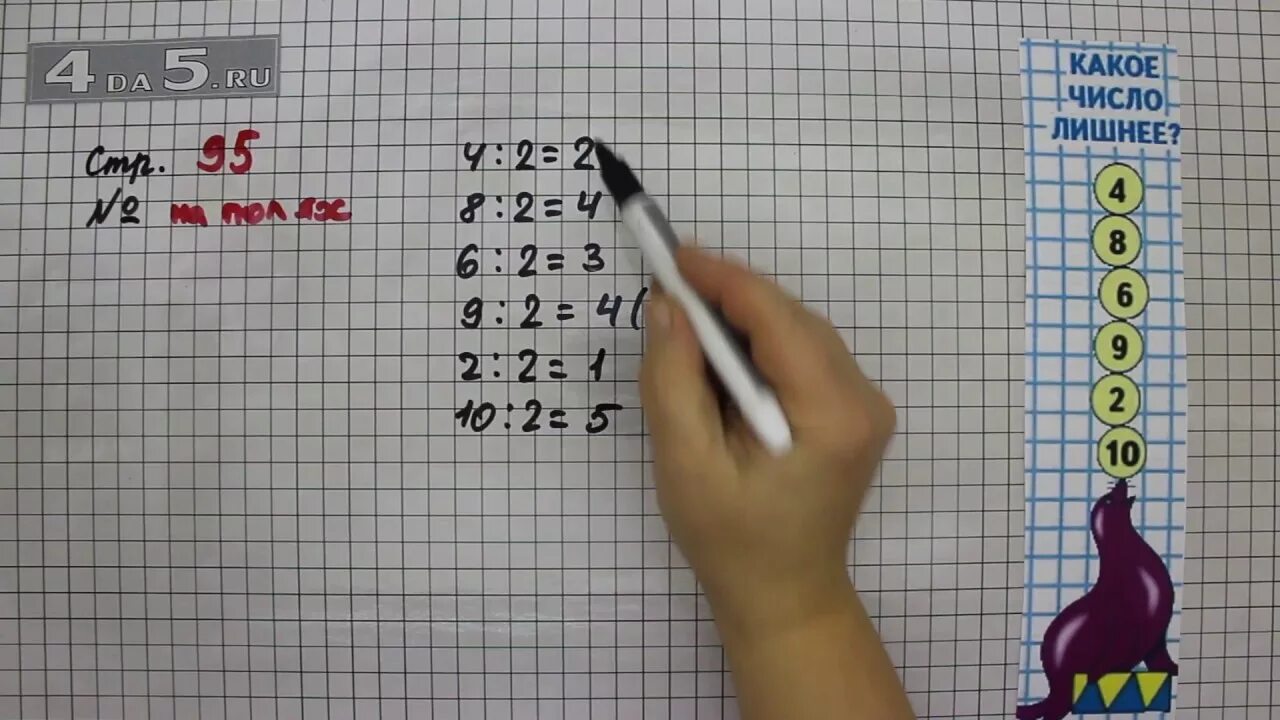 4DA5.RU
Стр. 95
№ на полях
4 : 2 = 2
8 : 2 = 4
6 : 2 = 3
9 : 2 = 4 (
2 : 2 = 1
10 : 2 = 5
КАКОЕ
ЧИСЛО
ЛИШНЕЕ?
4
8
6
9
2
10